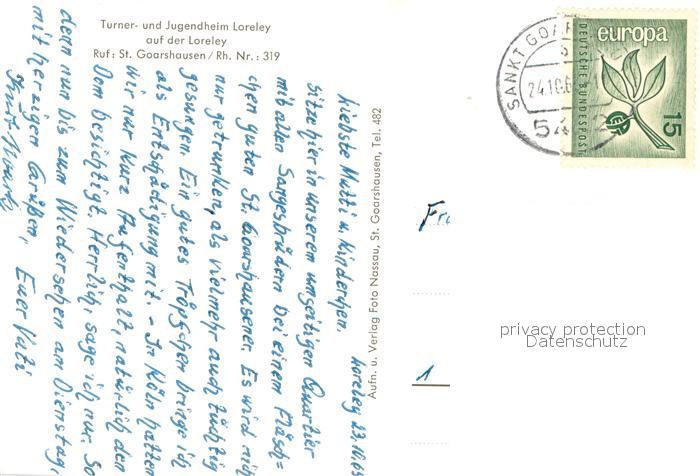 Turner- und Jugendheim Loreley
auf der Loreley
Ruf: St. Goarshausen/Rh. Nr.: 319
Loreley 23.10.65
Liebste Mutti u. Kinderchen.
Sitze hier in unserem umseitigen Quartier
mit allen Sangesbrüdern bei einem Fläsch=
chen guten St. Goarshausener. Es wird nicht
nur getrunken, als vielmehr auch tüchtig
gesungen. Ein gutes Tröpfchen bringe ich
als Entschädigung mit. - In Köln hatten
wir nur kurz Aufenthalt, natürlich den
Dom besichtigt. Herrlich, sage ich nur. So
denn nun bis zum Wiedersehen am Dienstag,
mit herzigen Grüßen, Euer Vati
Aufn. u. Verlag Foto Nassau, St. Goarshausen, Tel. 482
SANKT GOAR
24.10.6
54
europa
DEUTSCHE BUNDESPOST
15
Fr
1
privacy protection
Datenschutz